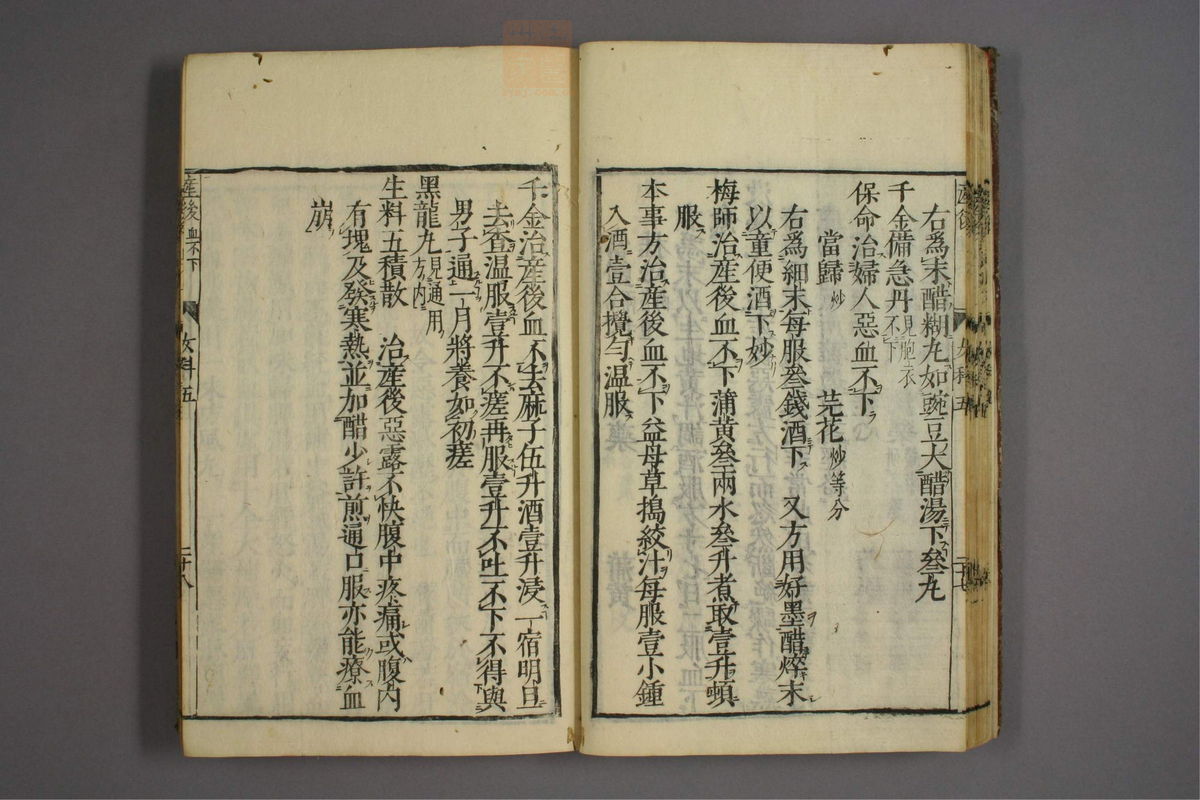 産後
女科五
二十七
右爲末醋糊丸如豌豆大醋湯下叄丸
千金備急丹見胞衣不下
保命治婦人惡血不下
當歸炒 芫花炒等分
右爲細末每服叄錢酒下 又方用好墨醋焠末
以童便酒下妙
梅師治産後血不下蒲黄叄兩水叄升煮取壹升頓
服
本事方治産後血不下益母草搗絞汁每服壹小鍾
入酒壹合攪勻溫服
千金治産後血不去麻子伍升酒壹升浸一宿明旦
去査溫服壹升不瘥再服壹升不吐不下不得與
男子通一月將養如初瘥
黑龍丸見通用方内
生料五積散 治産後惡露不快腹中疼痛或腹内
有塊及發寒熱並加醋少許煎通口服亦能療血
崩
産後血不下
女科五
二十八